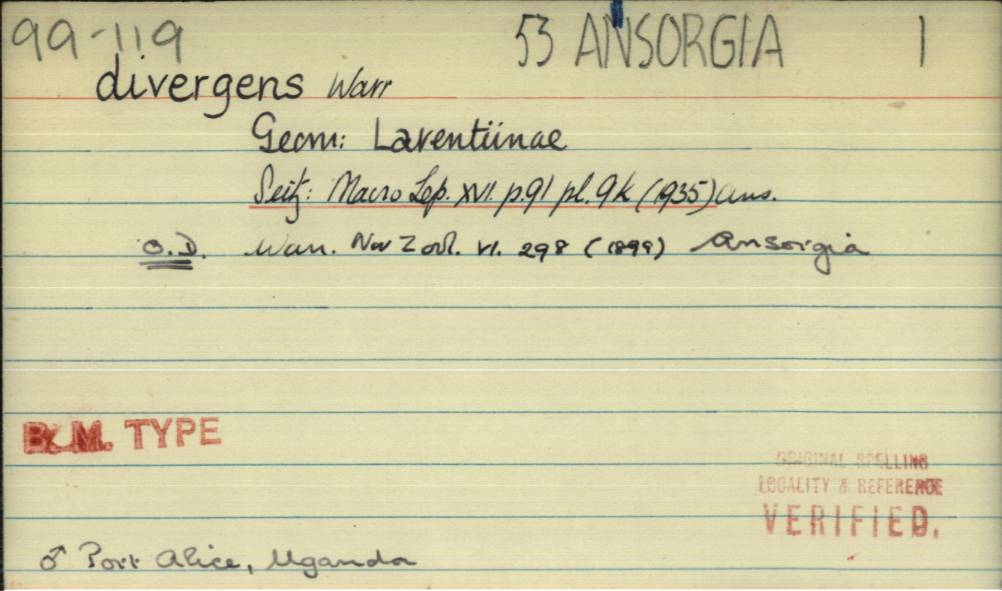 99-119 53 ANSORGIA 1
divergens Warr
Geom: Larentiinae
Seitz: Macro Lep. XVI. p.91 pl. 9k (1935) ans.
O.D. Warr. Nov Zool. VI. 298 (1899) Ansorgia
B.M. TYPE
ORIGINAL SPELLING
LOCALITY & REFERENCE
VERIFIED.
♂ Port Alice, Uganda